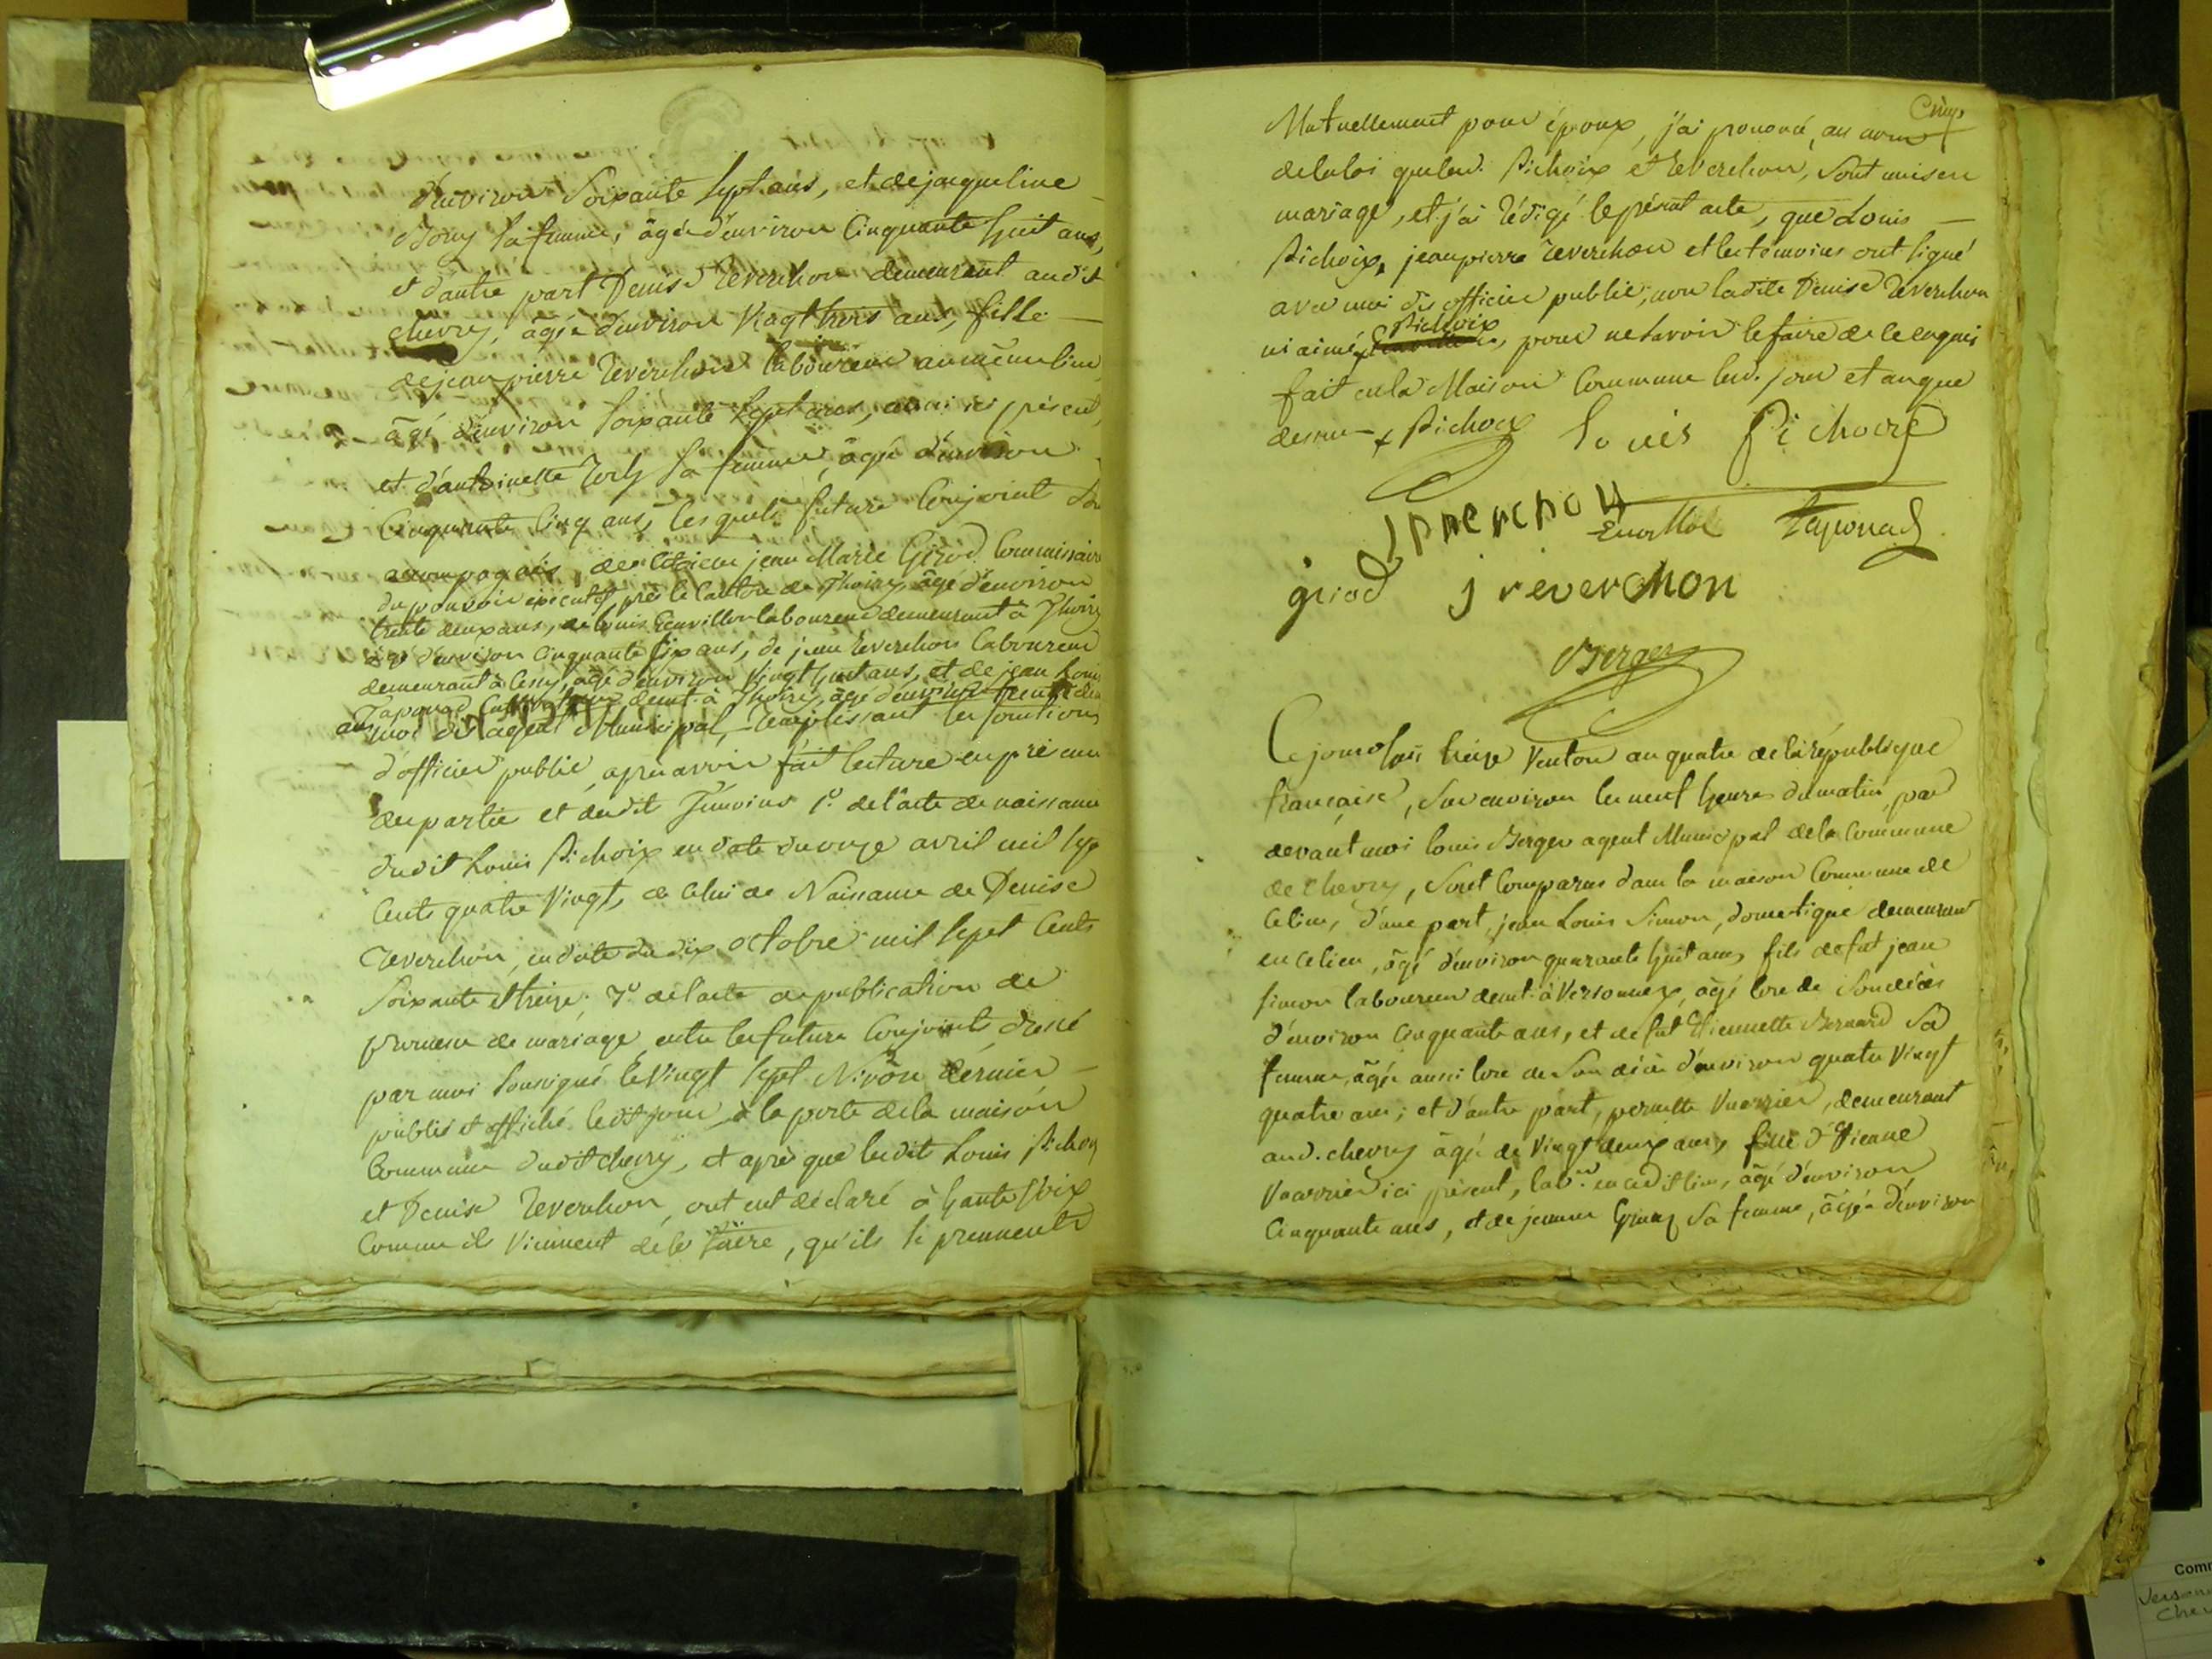 d'environ Soixante Sept ans, et de jacqueline
Bouy sa femme, âgée d'environ Cinquante huit ans,
et d'autre part Denise Reverchon demeurant audit
chevry, âgée d'environ Vingt trois ans, fille
de jean pierre Reverchon laboureur au même lieu
âgé d'environ Soixante Sept ans, aussi ici présent,
et d'antoinette sa femme, âgée d'environ
Cinquante Cinq ans, lesquels futurs Conjoint
accompagnés des Citoiens jean Marie Girod Commissaire
du pouvoir exécutif près le Canton de Thoiry, âgé d'environ
trente deux ans, de louis laboureur demeurant à Thoiry
âgé d'environ Cinquante Six ans, de jean Reverchon laboureur
demeurant à Cessy, âgé d'environ Vingt huit ans, et de jean Louis
Taponad demt. à Thoiry, âgé d'environ trente
ans moi dit agent Municipal, Remplissant les fonctions
d'officier public, après avoir fait lecture en présence
des parties et desdit Témoins 1° de l'acte de naissance
dudit Louis Pichoix en date du onze avril mil Sept
Cents quatre Vingt, de Celui de Naissance de Denise
Reverchon, en date du dix octobre mil Sept Cents
Soixante et treize; 2° de l'acte de publication de
promesse de mariage entre les futurs Conjoints dressé
par moi Soussigné le Vingt Sept Nivôse dernier
publié et affiché ledit jour à la porte de la maison
Commune dudit chevry, et après que ledit Louis Pichoix
et Denise Reverchon, ont eut déclaré à haute Voix
Comme ils Viennent de le faire, qu'ils se prennent
Cinq
Mutuellement pour époux, j'ai prononcé, au nom
de la loi que lesd. Pichoix et Reverchon, Sont unis en
mariage, et j'ai Rédigé le présent acte, que Louis
Pichoix, jean pierre Reverchon et les témoins ont signé
avec moi dit officier public, non ladite Denise Reverchon
Pichoix
ni aimé, pour ne Savoir le faire de ce enquis
fait en la Maison Commune lesd. jour et an que
dessus Pichoix louis Pichoix
Taponad
girod j reverchon
Berger
Cejourd'hui treize Ventôse an quatre de la république
française, Sur environ les neuf heures du matin, par
devant moi louis Berger agent Municipal de la Commune
de chevry, Sont Comparus dans la maison Commune de
Ce lieu, d'une part, jean Louis Simon, domestique demeurant
en ce lieu, âgé d'environ quarante huit ans, fils de fut jean
Simon laboureur demt. à Versonnex, âgé lors de Son décès
d'environ Cinquante ans, et de fut Etiennette Bernard Sa
femme, âgée aussi lors de Son décès d'environ quatre Vingt
quatre ans; et d'autre part, pernette Vuarrier, demeurant
aud. chevry âgée de Vingt deux ans, fille d'Etienne
Vuarrier ici présent, labr. en cedit lieu, âgé d'environ
Cinquante ans, et de jeanne Sa femme, âgée d'environ